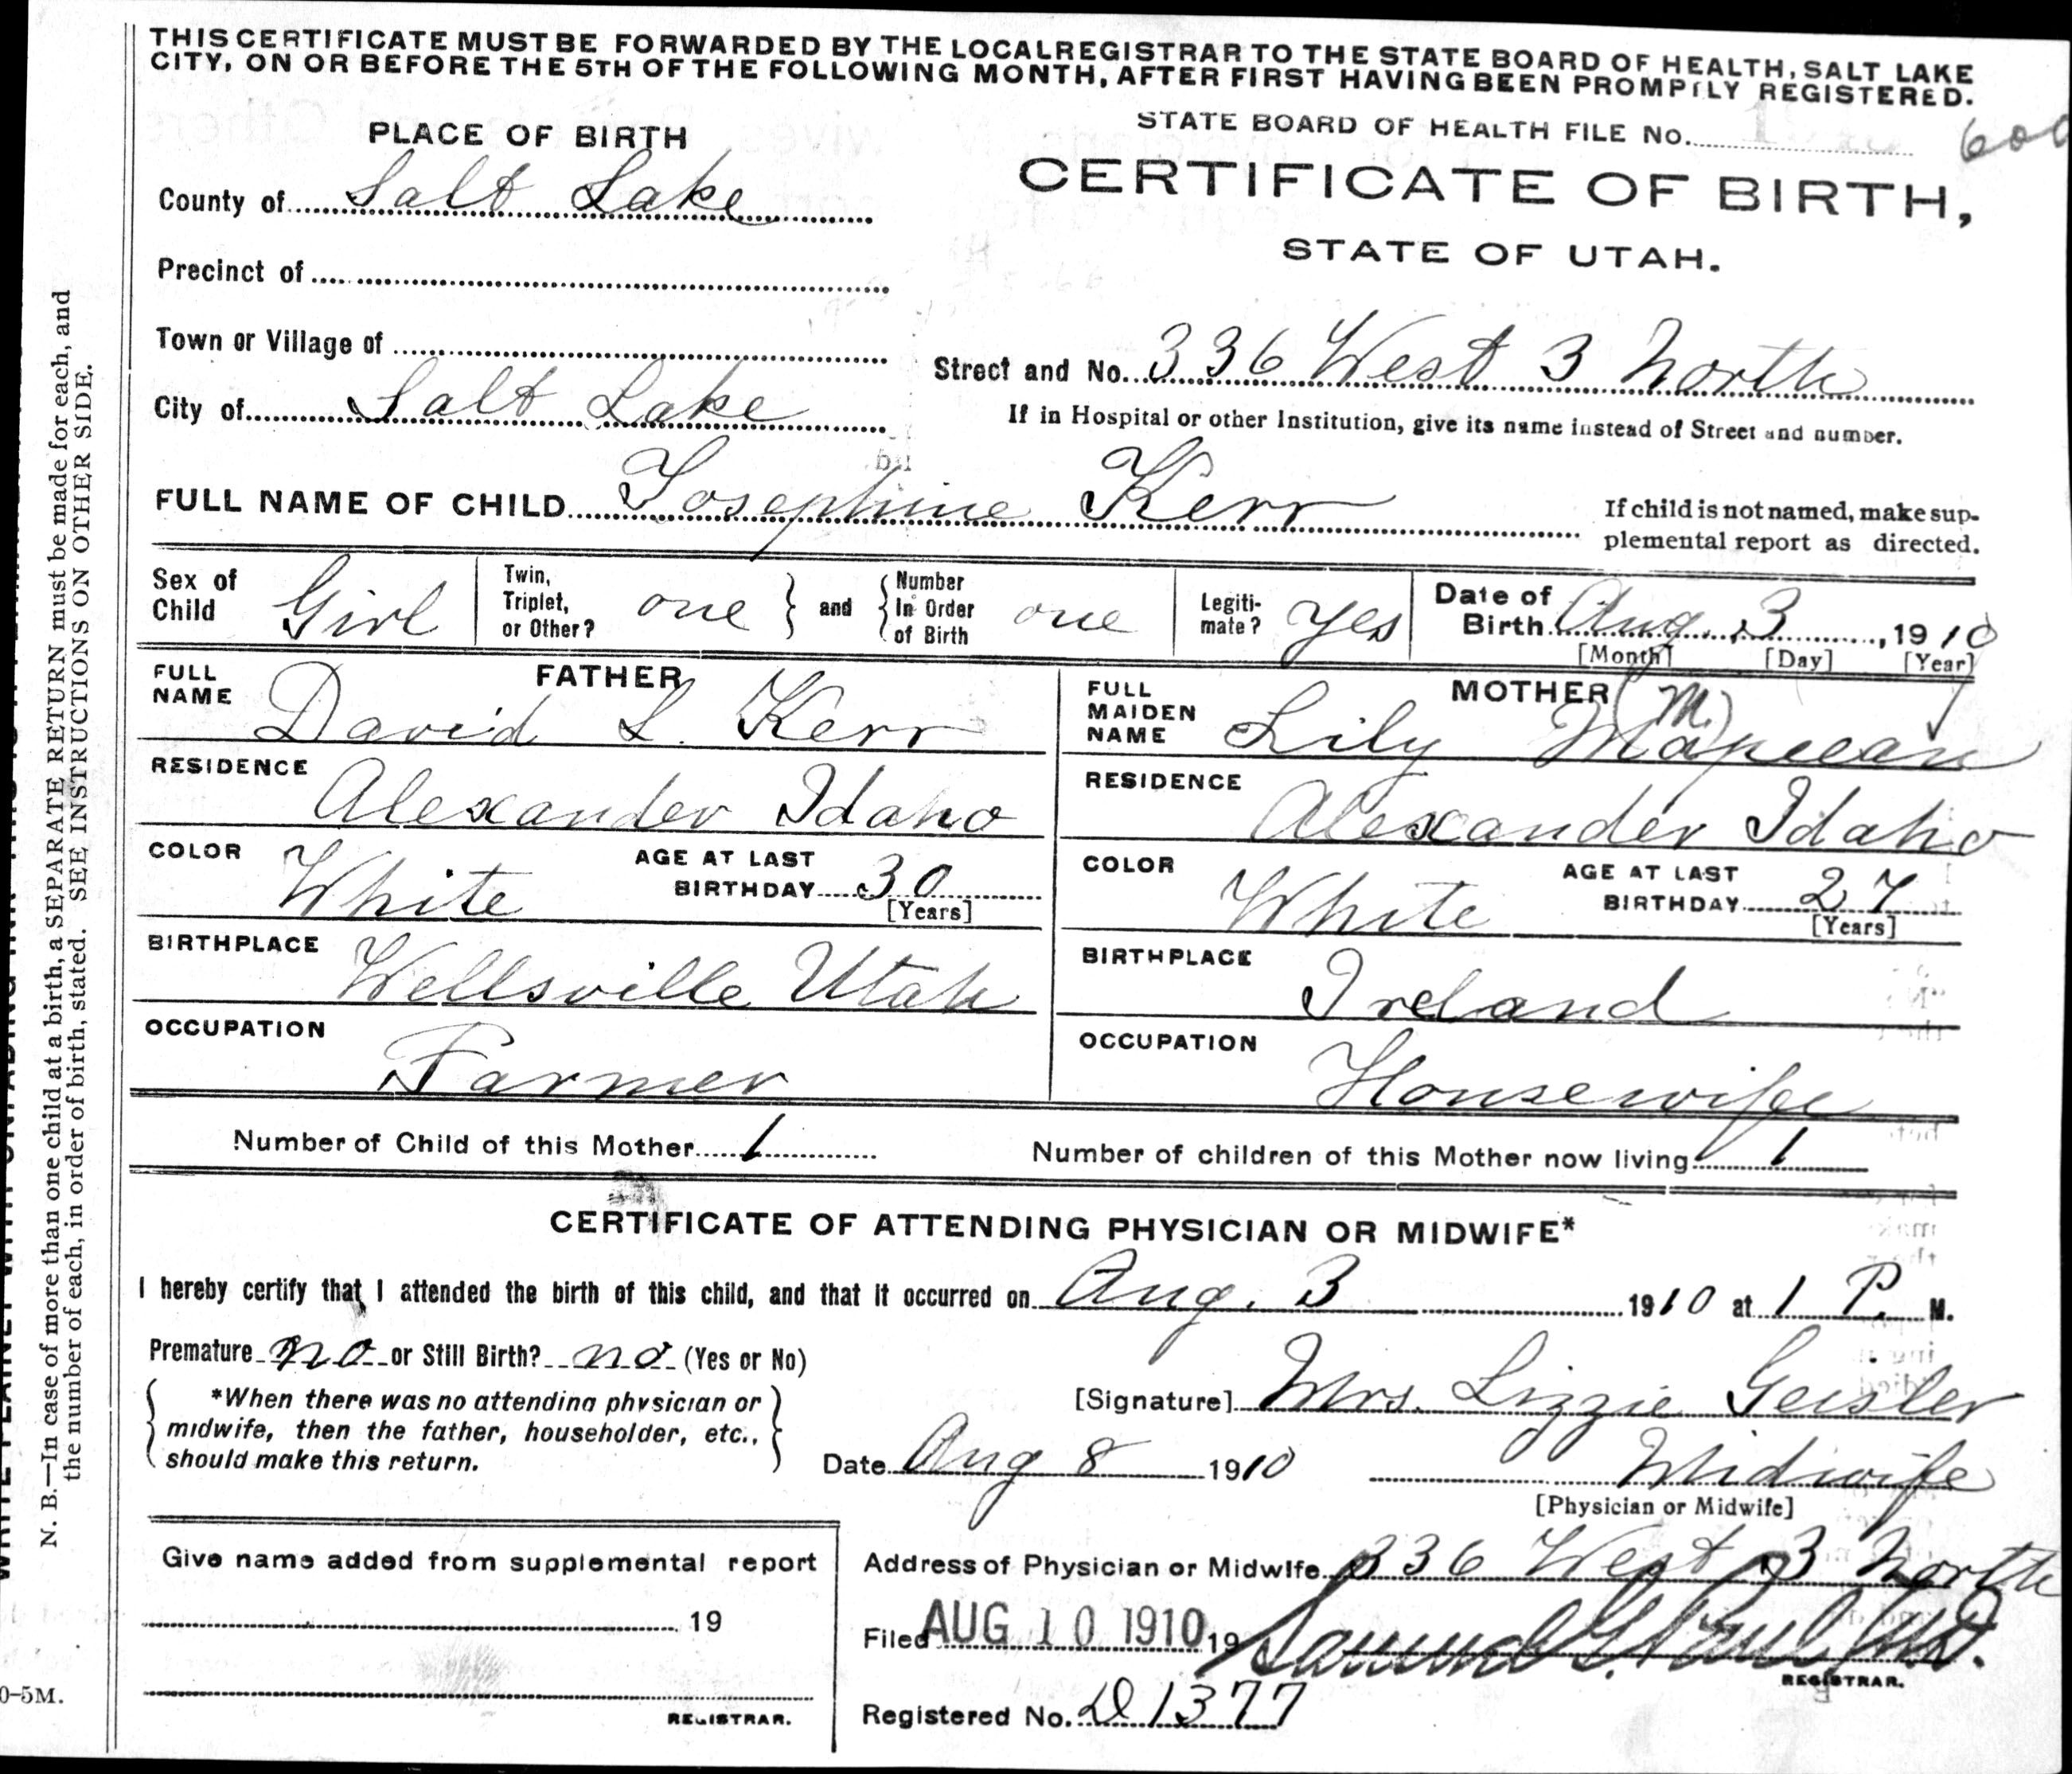 THIS CERTIFICATE MUST BE FORWARDED BY THE LOCAL REGISTRAR TO THE STATE BOARD OF HEALTH, SALT LAKE
CITY, ON OR BEFORE THE 5TH OF THE FOLLOWING MONTH, AFTER FIRST HAVING BEEN PROMPTLY REGISTERED.
STATE BOARD OF HEALTH FILE No.
600
PLACE OF BIRTH
CERTIFICATE OF BIRTH,
STATE OF UTAH.
County of Salt Lake
Precinct of
Town or Village of
Street and No. 336 West 3 North
City of Salt Lake
If in Hospital or other Institution, give its name instead of Street and number.
FULL NAME OF CHILD Josephine Kerr
If child is not named, make sup-
plemental report as directed.
Sex of Child Girl
Twin, Triplet, or Other? one and Number In Order of Birth one
Legiti-mate? yes
Date of Birth Aug. 3, 1910
[Month] [Day] [Year]
FATHER
FULL NAME David L. Kerr
RESIDENCE Alexander Idaho
COLOR White AGE AT LAST BIRTHDAY 30
[Years]
BIRTHPLACE Wellsville Utah
OCCUPATION Farmer
MOTHER
FULL MAIDEN NAME Lily (M.)
RESIDENCE Alexander Idaho
COLOR White AGE AT LAST BIRTHDAY 27
[Years]
BIRTHPLACE Ireland
OCCUPATION Housewife
Number of Child of this Mother 1 Number of children of this Mother now living 1
CERTIFICATE OF ATTENDING PHYSICIAN OR MIDWIFE*
I hereby certify that I attended the birth of this child, and that it occurred on Aug. 3 1910 at 1 P. M.
Premature no or Still Birth? no (Yes or No)
*When there was no attending physician or
midwife, then the father, householder, etc.,
should make this return.
[Signature] Mrs. Lizzie Geisler
Date Aug 8 1910 Midwife
[Physician or Midwife]
Give name added from supplemental report
19
REGISTRAR.
Address of Physician or Midwife 336 West 3 North
Filed AUG 10 1910 19 Samuel G. Paul M.D.
REGISTRAR.
Registered No. D 1377
N. B.—In case of more than one child at a birth, a SEPARATE RETURN must be made for each, and
the number of each, in order of birth, stated. SEE INSTRUCTIONS ON OTHER SIDE.
0-5M.